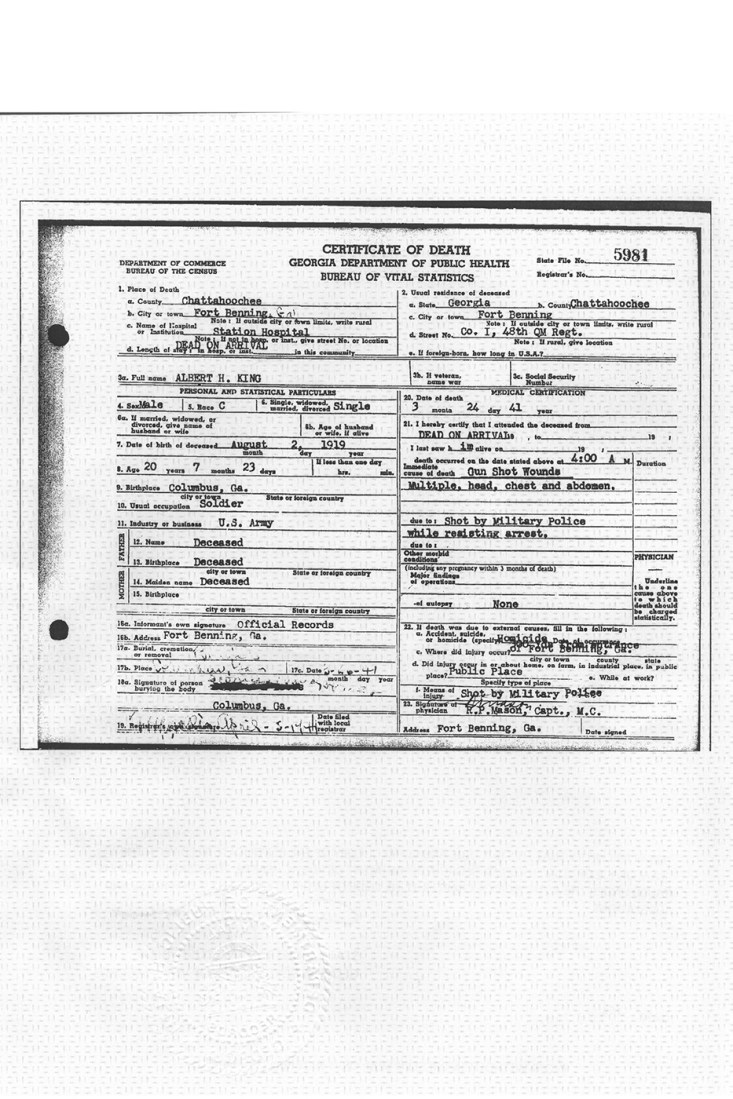 CERTIFICATE OF DEATH
DEPARTMENT OF COMMERCE
BUREAU OF THE CENSUS
GEORGIA DEPARTMENT OF PUBLIC HEALTH
BUREAU OF VITAL STATISTICS
State File No. 5981
Registrar's No.
1. Place of Death
a. County Chattahoochee
b. City or town Fort Benning,
Note: If outside city or town limits, write rural
c. Name of Hospital
or Institution Station Hospital
Note: If not in hosp. or inst., give street No. or location
DEAD ON ARRIVAL
d. Length of stay: in hosp. or inst. in this community
2. Usual residence of deceased
a. State Georgia b. County Chattahoochee
c. City or town Fort Benning
Note: If outside city or town limits, write rural
d. Street No. Co. I, 48th QM Regt.
Note: If rural, give location
e. If foreign-born, how long in U.S.A.?
3a. Full name ALBERT H. KING
3b. If veteran,
name war
3c. Social Security
Number
PERSONAL AND STATISTICAL PARTICULARS
4. Sex Male 5. Race C 6. Single, widowed,
married, divorced Single
6a. If married, widowed, or
divorced, give name of
husband or wife
6b. Age of husband
or wife, if alive
7. Date of birth of deceased August 2, 1919
month day year
8. Age 20 years 7 months 23 days
If less than one day
hrs. min.
9. Birthplace Columbus, Ga.
city or town State or foreign country
10. Usual occupation Soldier
11. Industry or business U.S. Army
FATHER
12. Name Deceased
13. Birthplace Deceased
city or town State or foreign country
MOTHER
14. Maiden name Deceased
15. Birthplace
city or town State or foreign country
16a. Informant's own signature Official Records
16b. Address Fort Benning, Ga.
17a. Burial, cremation,
or removal
17b. Place 17c. Date
month day year
18a. Signature of person
burying the body
Columbus, Ga.
19. Registrar's April - 5-1941
Date filed
with local
registrar
MEDICAL CERTIFICATION
20. Date of death
3 month 24 day 41 year
21. I hereby certify that I attended the deceased from
DEAD ON ARRIVAL 19 , to 19 ;
I last saw him alive on 19 ;
death occurred on the date stated above at 4:00 A M.
Duration
Immediate
cause of death Gun Shot Wounds
Multiple, head, chest and abdomen.
due to: Shot by Military Police
while resisting arrest.
due to:
Other morbid
conditions
(including any pregnancy within 3 months of death)
Major findings
of operations
of autopsy None
PHYSICIAN
Underline
the one
cause above
to which
death should
be charged
statistically.
22. If death was due to external causes, fill in the following:
a. Accident, suicide,
or homicide (specify) Homicide Date of occurrence
c. Where did injury occur? of Fort Benning, Ga.
city or town county state
d. Did injury occur in or about home, on farm, in industrial place, in public
place? Public Place e. While at work?
Specify type of place
f. Means of
injury Shot by Military Police
23. Signature of
physician R.P. Mason, Capt., M.C.
Address Fort Benning, Ga. Date signed